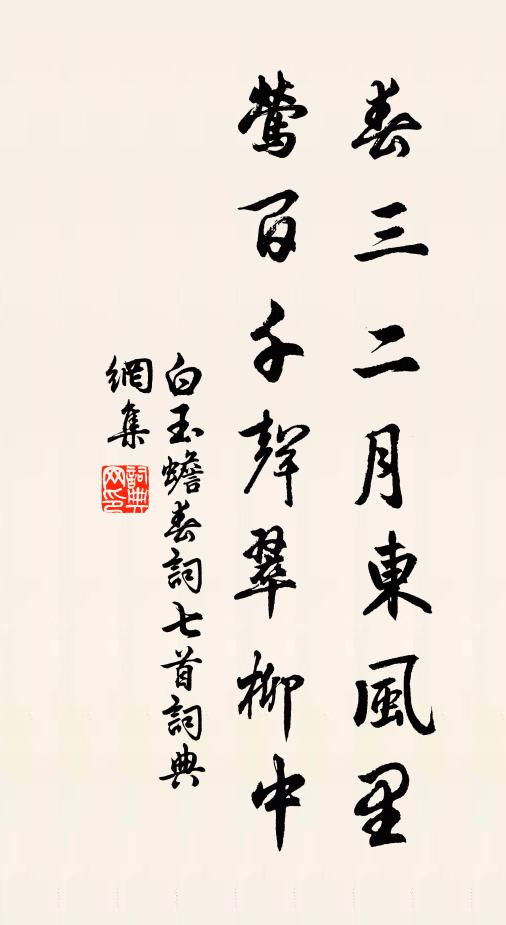 春三二月東風里
鶯百千聲翠柳中
白玉蟾春詞七首詞典
網集
詞典網印